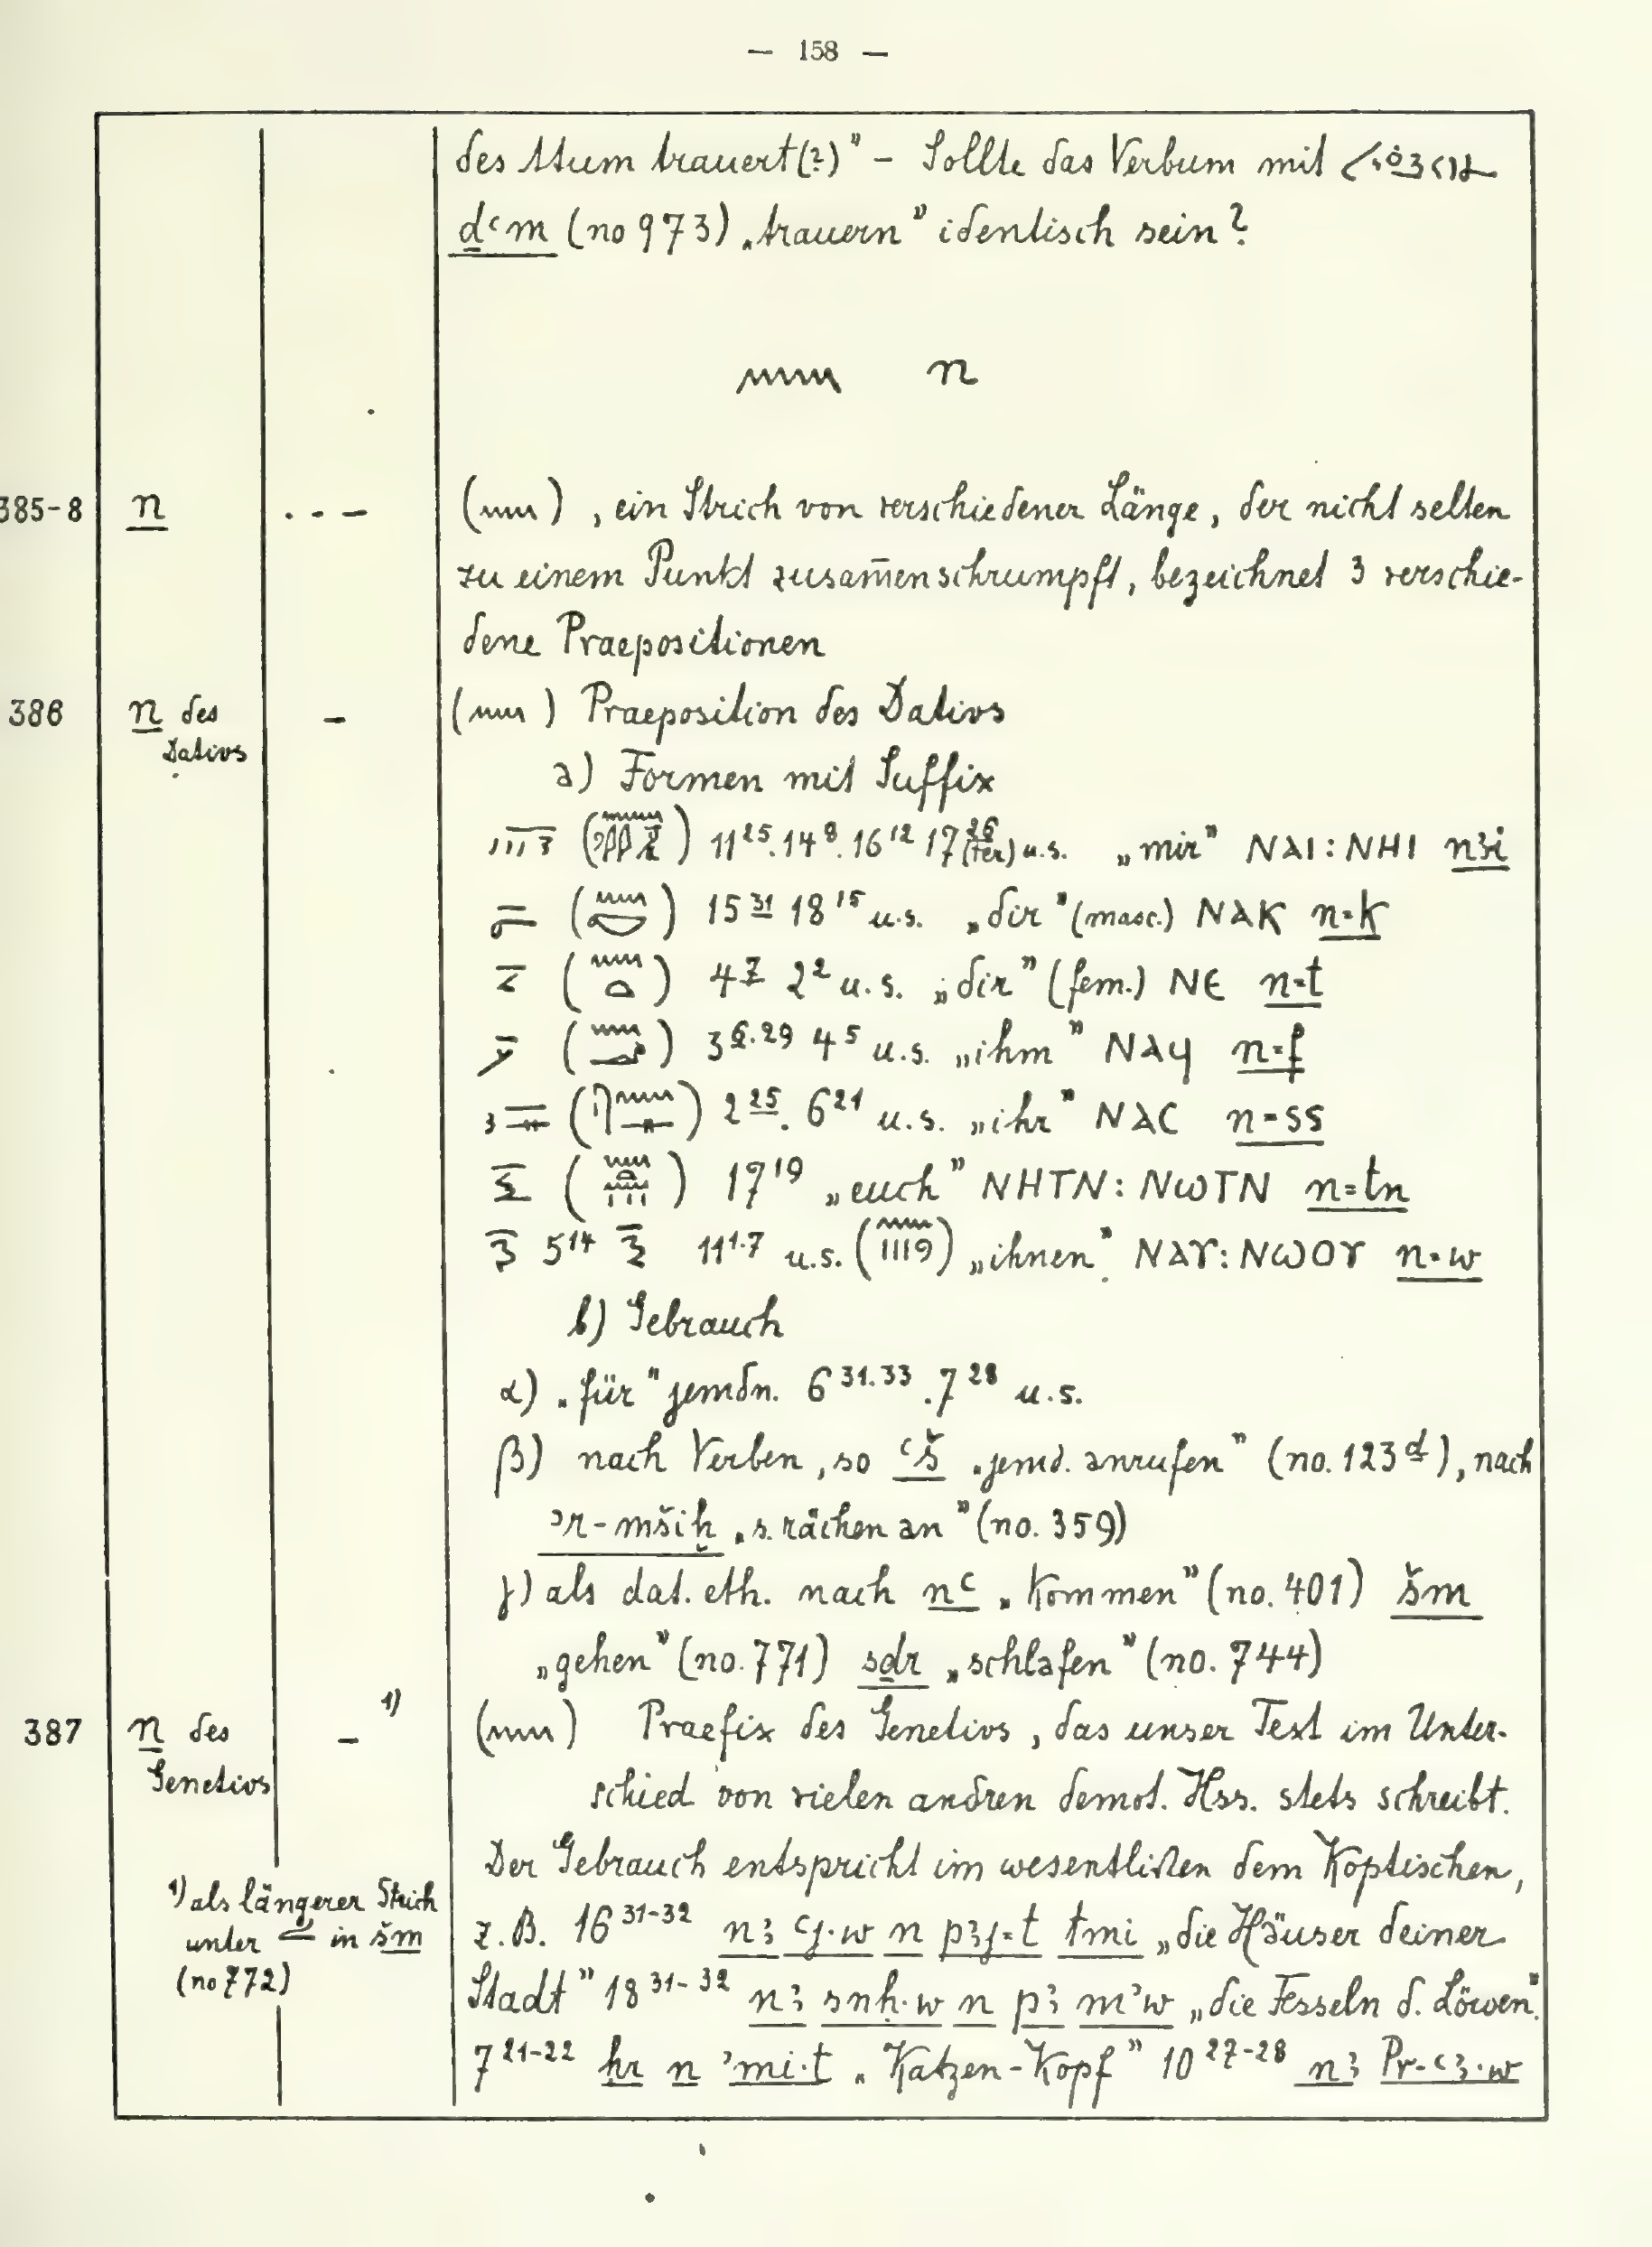 — 158 —
des Atum trauert(?)" – Sollte das Verbum mit
ḏꜥm (no 973) „trauern" identisch sein?
n
385-8 n . - — ( ) , ein Strich von verschiedener Länge, der nicht selten
zu einem Punkt zusam̄enschrumpft, bezeichnet 3 verschie-
dene Praepositionen
386 n des Dativs — ( ) Praeposition des Dativs
a) Formen mit Suffix
( ) 11²⁵.14⁸.16¹² 17²⁶ (ter) u.s. „mir" ⲚⲀⲒ : ⲚⲎⲒ nꜣi
( ) 15³¹ 18¹⁵ u.s. „dir" (masc.) ⲚⲀⲔ n=k
( ) 4⁷ 2² u.s. „dir" (fem.) ⲚⲈ n=t
( ) 3⁶·²⁹ 4⁵ u.s. „ihm" ⲚⲀϤ n=f
( ) 2²⁵. 6²¹ u.s. „ihr" ⲚⲀⲤ n=ss
( ) 17¹⁹ „euch" ⲚⲎⲦⲚ : ⲚⲰⲦⲚ n=tn
5¹⁴ 11¹·⁷ u.s. ( ) „ihnen" ⲚⲀⲨ : ⲚⲰⲞⲨ n=w
b) Gebrauch
α) „für" jemdn. 6³¹·³³.7²⁸ u.s.
β) nach Verben, so ꜥš „jemd. anrufen" (no. 123ᵈ), nach
ꜣr-mšiḫ „s. rächen an" (no. 359)
γ) als dat. eth. nach nꜥ „kommen" (no. 401) šm
„gehen" (no. 771) sḏr „schlafen" (no. 744)
387 n des Genetivs — ¹⁾ ( ) Praefix des Genetivs, das unser Text im Unter-
schied von vielen andren demot. Hss. stets schreibt.
Der Gebrauch entspricht im wesentlichen dem Koptischen,
z.B. 16³¹⁻³² nꜣ ꜥy·w n pꜣy=t tmi „die Häuser deiner
Stadt" 18³¹⁻³² nꜣ snḥ·w n pꜣ mꜣw „die Fesseln d. Löwen"
7²¹⁻²² ḥr n ꜣmi·t „Katzen-Kopf" 10²⁷⁻²⁸ nꜣ Pr-ꜥꜣ·w
¹⁾ als längerer Strich
unter in šm
(no 772)